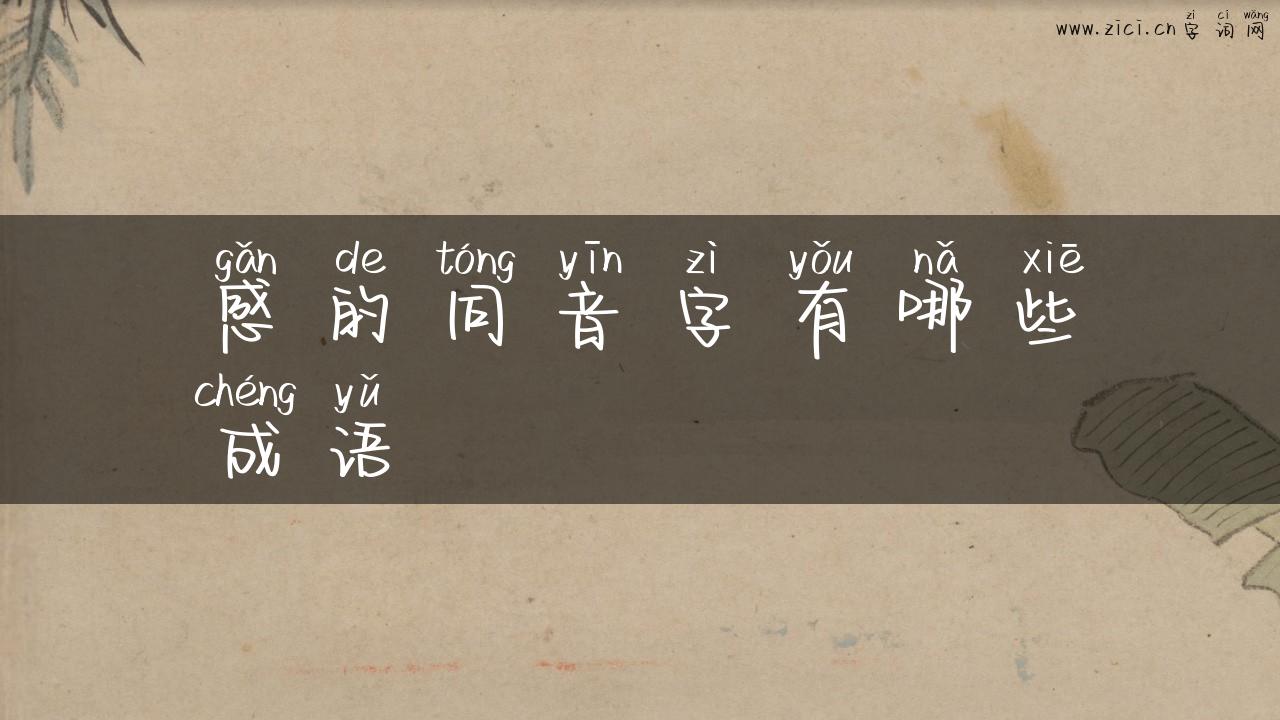 zì cí wǎng
www.zici.cn 字词网
gǎn de tóng yīn zì yǒu nǎ xiē
感的同音字有哪些
chéng yǔ
成语